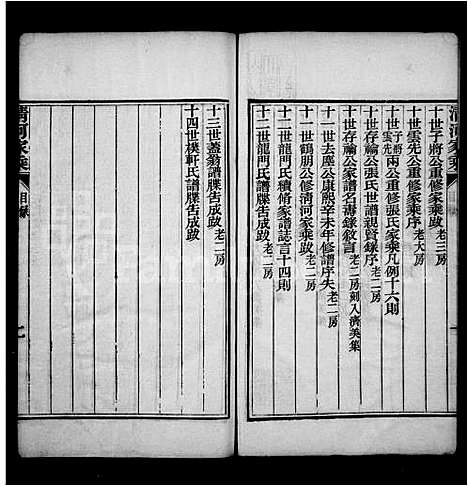 清河家乘
目錄
十世子將公重修家乘跋老三房
十世雲先公重修家乘序老大房
十世子將雲先兩公重修張氏家乘凡例十六則
十世存禴公家張氏世譜親賢錄序老二房
十世存禴公家譜名壽錄敘言老二房刻入濟美集
十一世去塵公康熙辛未年修譜序失老二房
十一世鶴朋公修淸河家乘跋老二房
十二世龍門氏續脩家譜誌言十四則
十二世龍門氏譜牒告成跋老二房
十三世蓋翁譜牒告成跋老二房
十四世樸軒氏譜牒告成跋
清河家乘
目錄
七